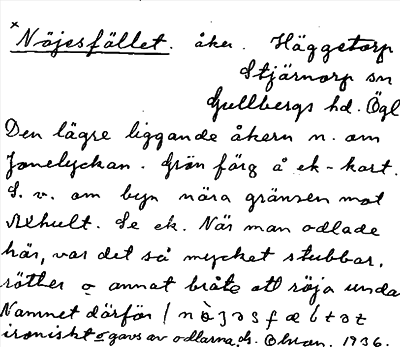 × Nöjesfället. åker. Häggetorp
Stjärnorp sn
Gullbergs hd. Ögl
Den lägre liggande åkern n. om
Jonelyckan. Grön färg å ek-kart.
S. v. om byn nära gränsen mot
Älhult. Se ek. När man odlade
här, var det så mycket stubbar,
rötter o annat bråte att röja undan
Namnet därför
ironiskt o gavs av odlarna. Ohson. 1936.